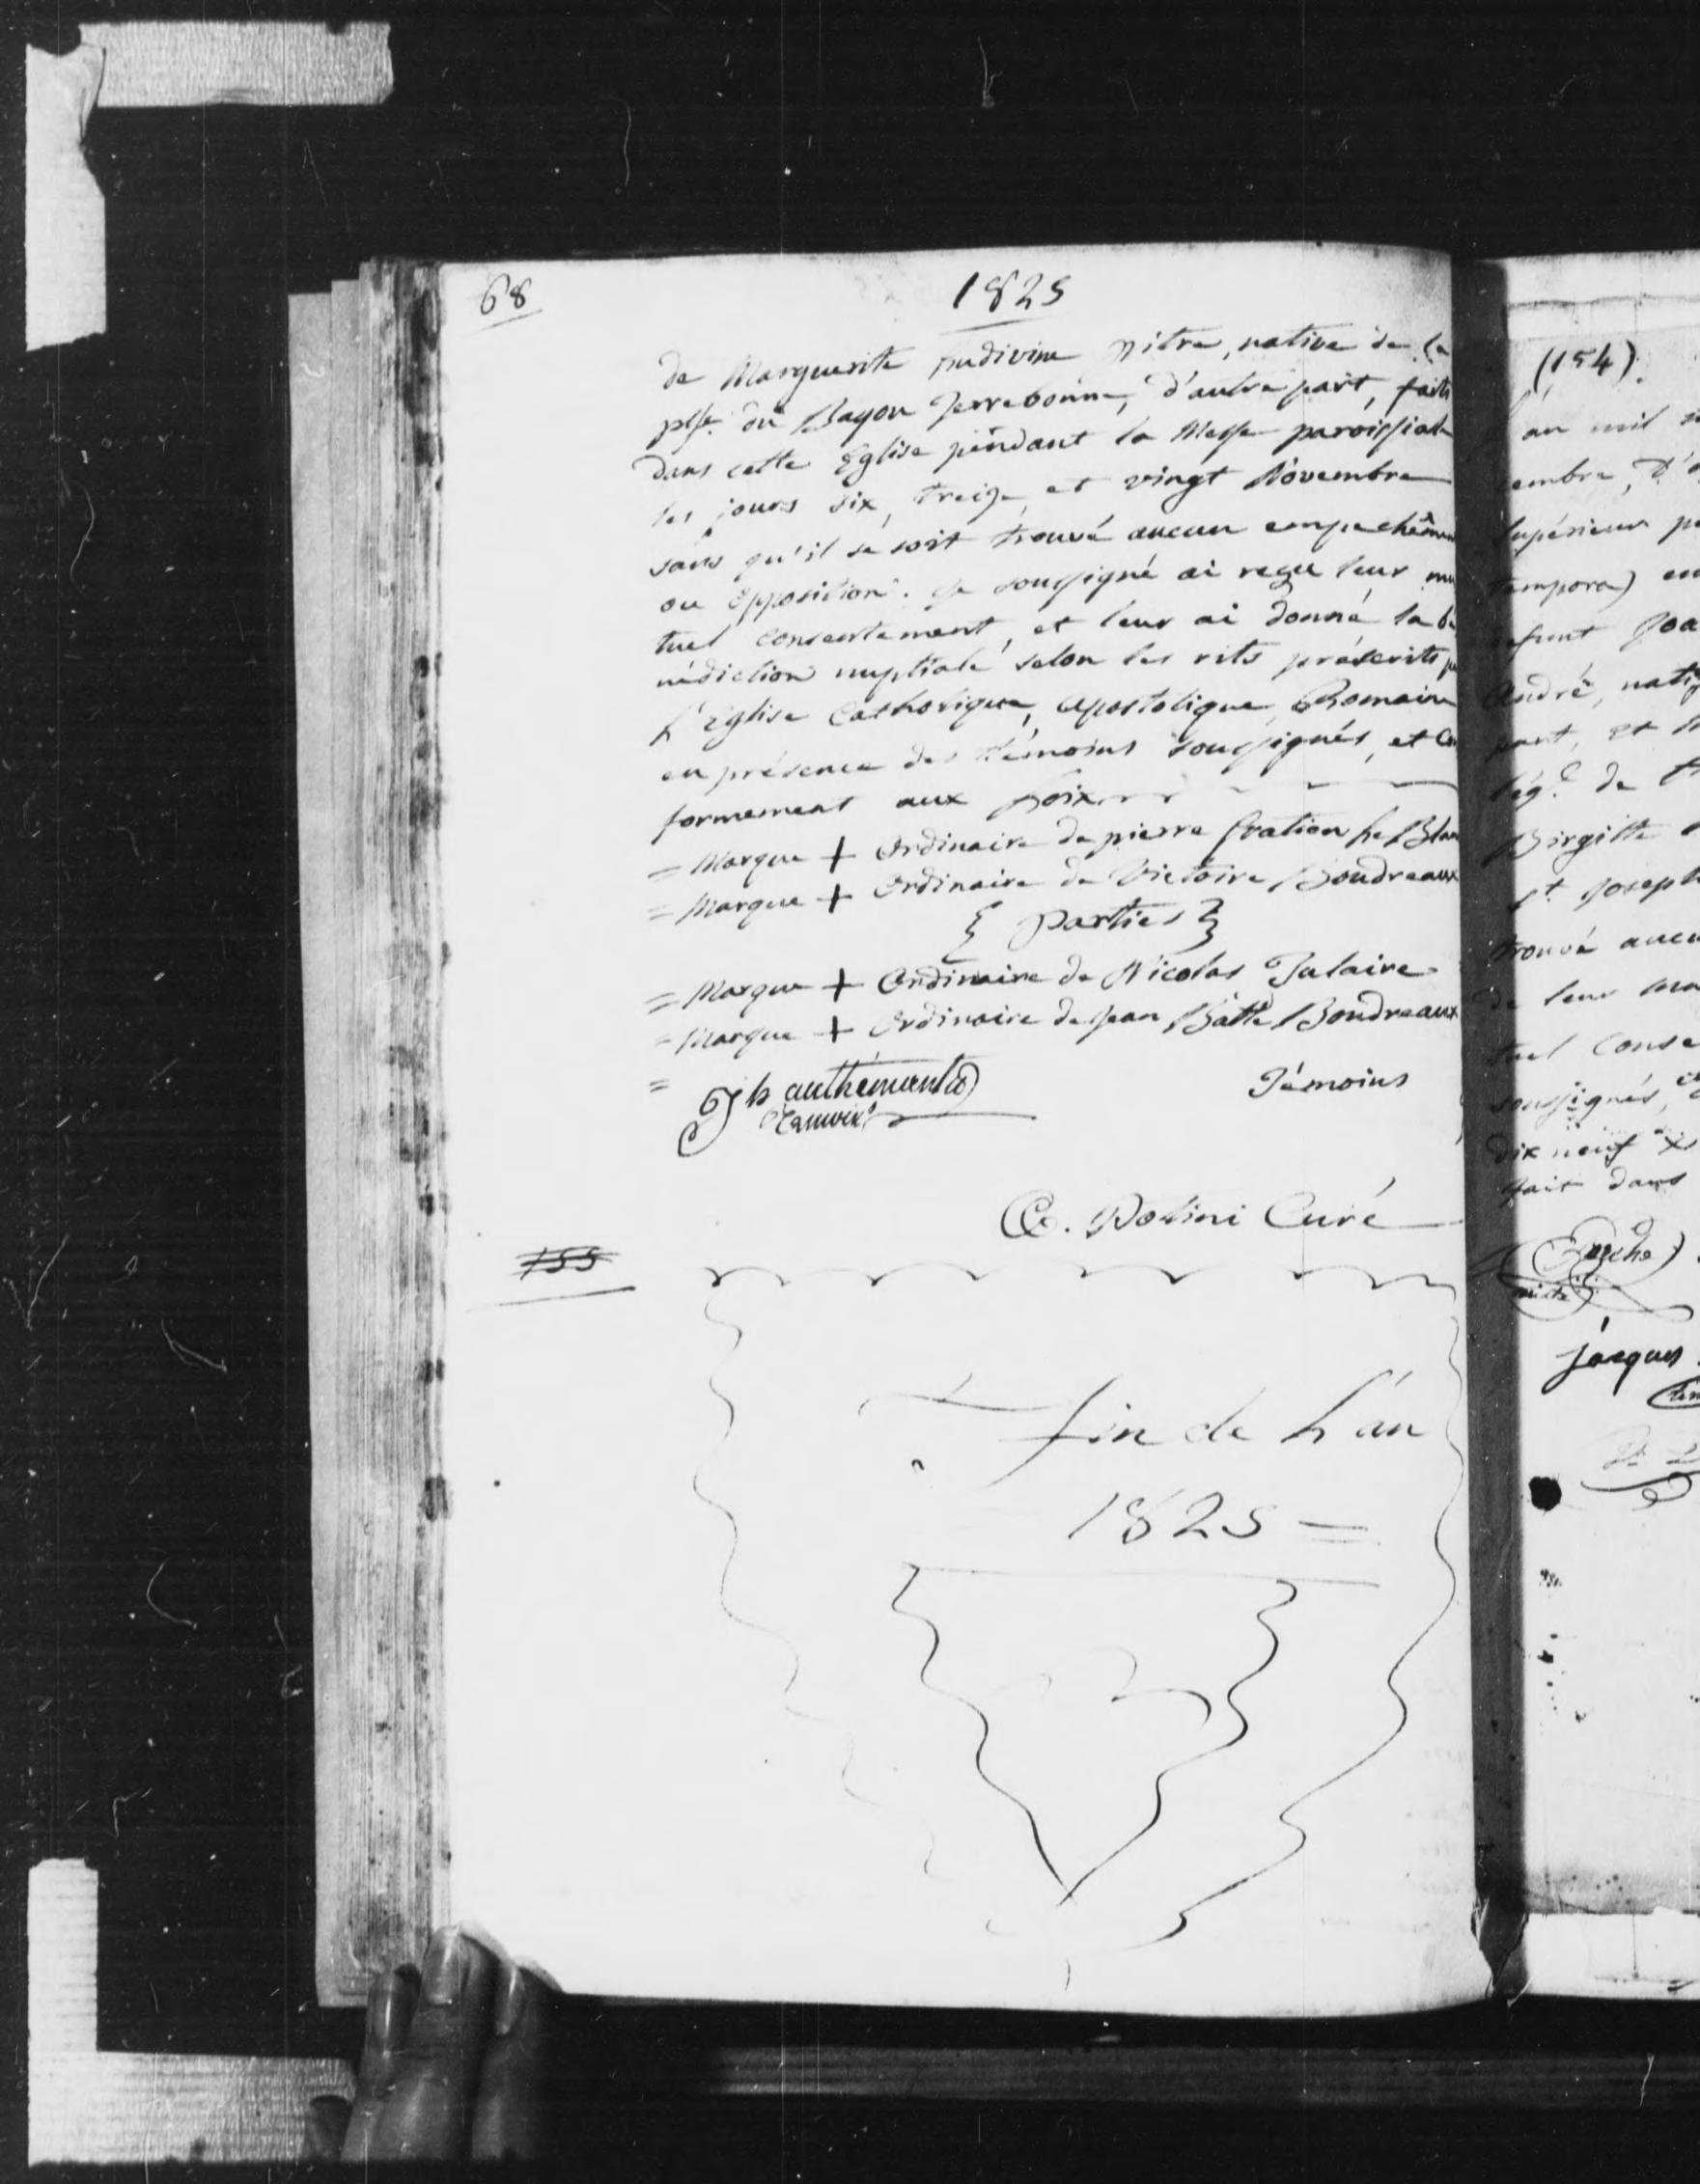 68
1825
de Marguerite ludivine pitre, native de la
psse. du Bayou Terrebonne, d'autre part, faits
dans cette Eglise pendant la Messe paroissiale
les jours six, treize, et vingt Novembre
sans qu'il se soit trouvé aucun empechêmen
ou Opposition. Je soussigné ai reçu leur mu
tuel consentement, et leur ai donné la bé
nédiction nuptiale selon les rits préscrits p
L'Eglise Catholique, Apostolique, Romaine
en présence des témoins soussignés, et Con
formement aux Loix
= Marque + Ordinaire de pierre Le Blan
= Marque + Ordinaire de Victoire Boudreaux
{ Parties }
= Marque + Ordinaire de Nicolas Tulaire
= Marque + Ordinaire de Jean Batte Boudreaux
= Jh authement
Témoins
Potini Curé
155
fin de L'an
1825 =
(154)
an mil
cembre, d'
Supérieur p
tempora) en
défunt Joa
André, nati
part, et
lég.e de
Birgitte
St. Joseph
trouvé aucu
de leur
tuel Conse
soussignés,
dix neuf
fait dans
jacques